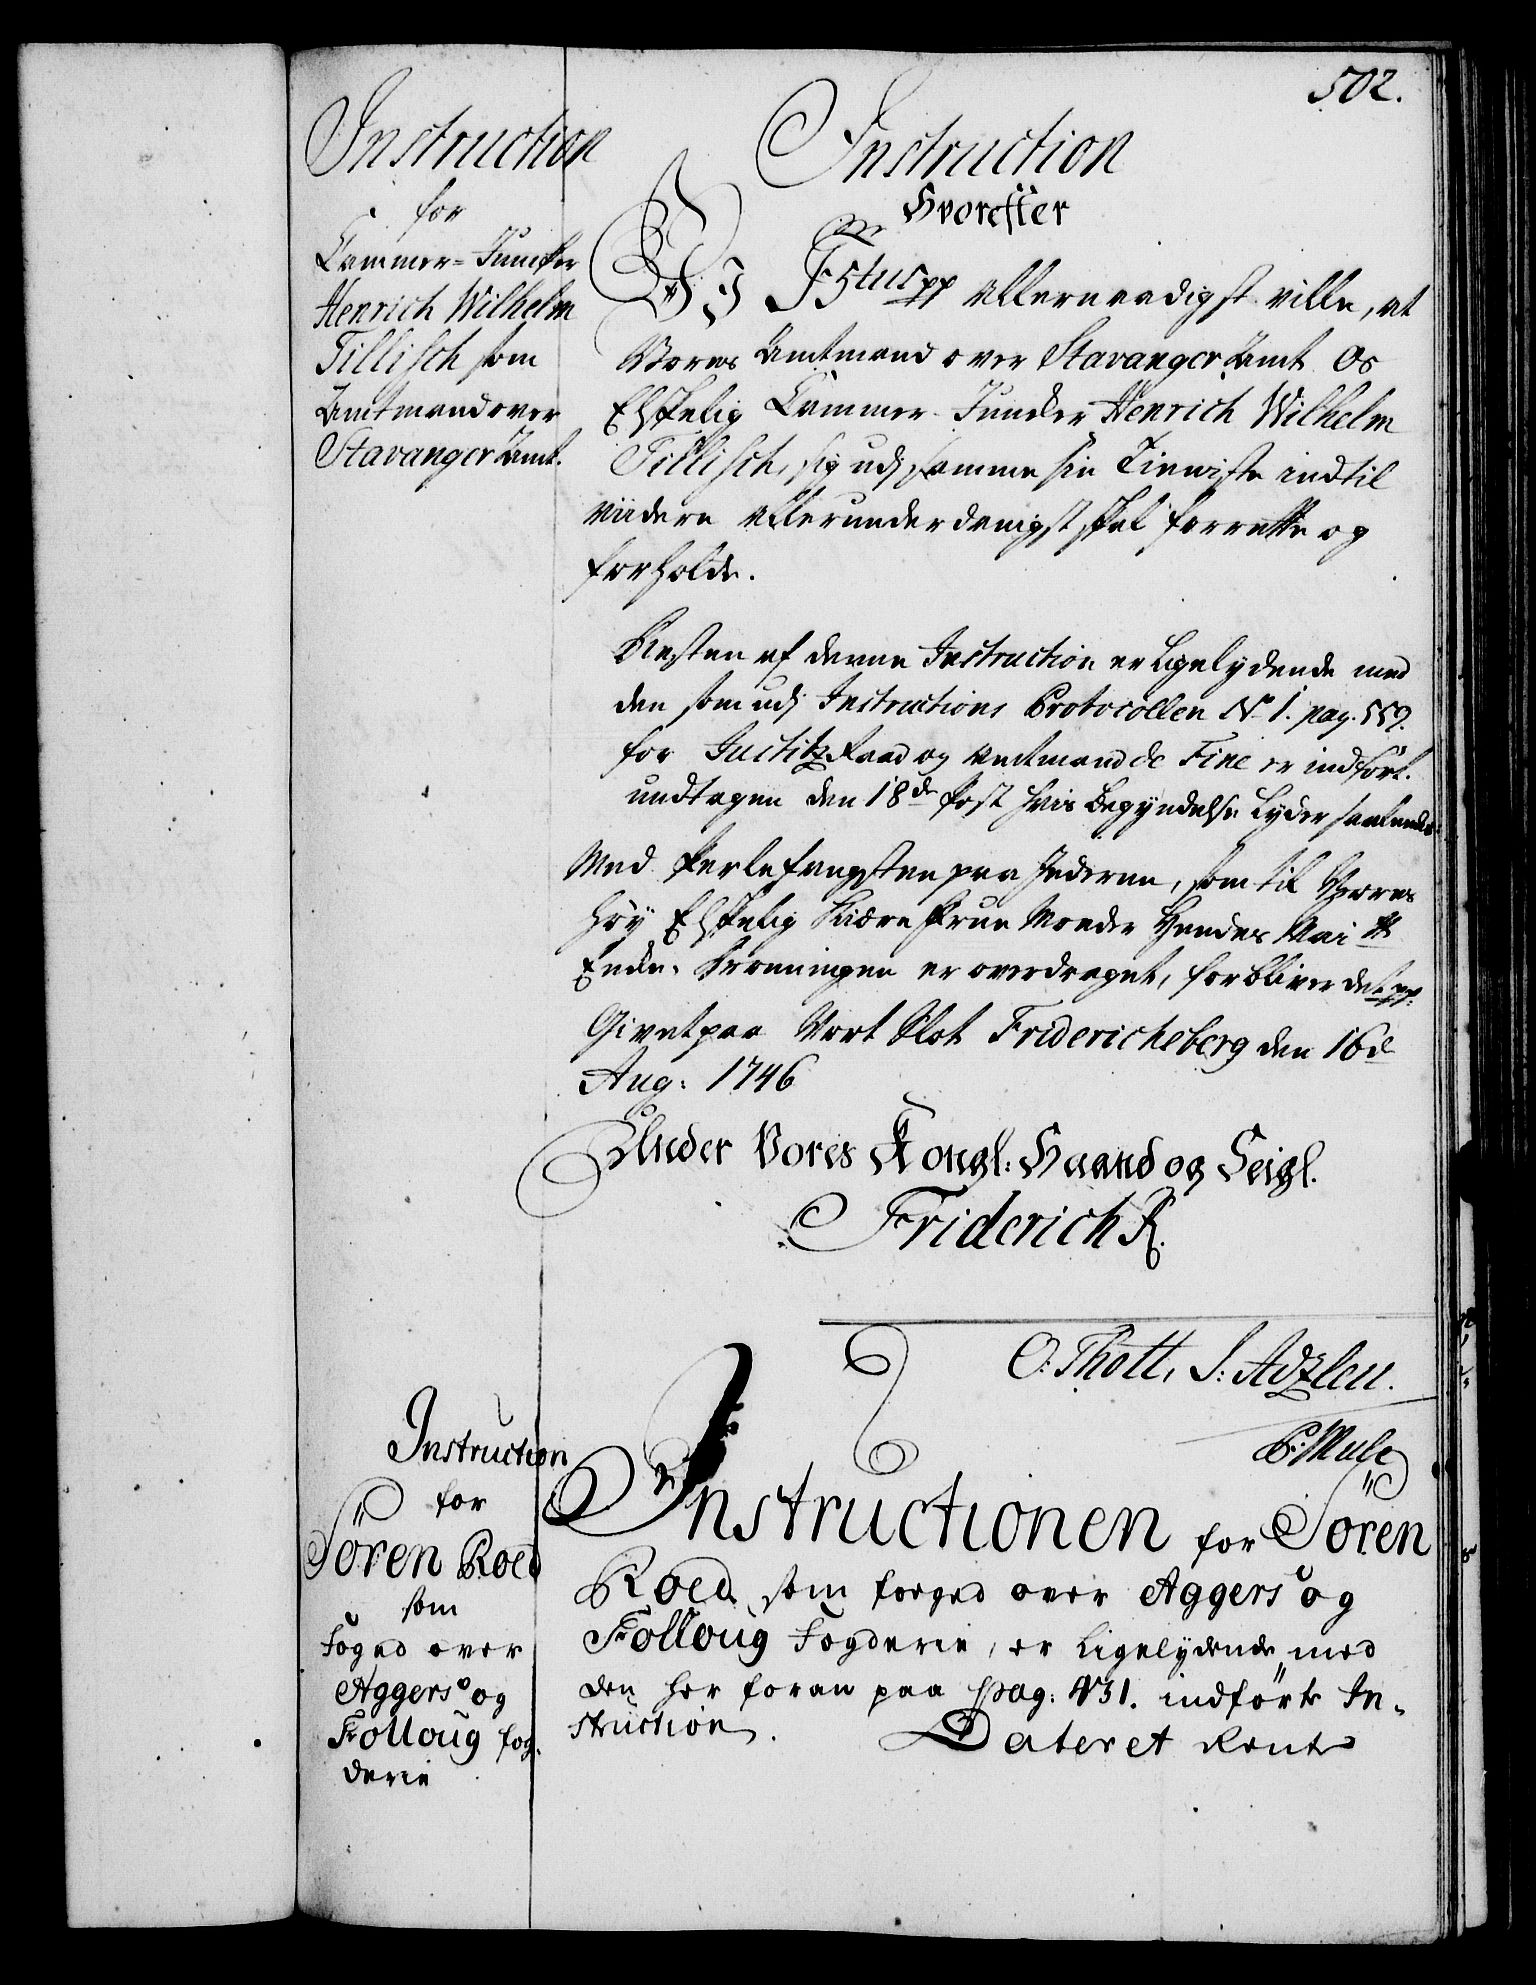 502.
Instruction
for
Cammer-Juncker
Henrich Wilhelm
Tillisch som
Amtmand over
Stavanger Amt.
Instruction
Hvorefter
Wi Fr: 5tus pp allernaadigst ville, at
Vores Amtmand over Stavanger Amt Os
Elskelig Cammer-Juncker Henrich Wilhelm
Tillisch, sig udj samme sin Tieniste indtil
viidere allerunderdanigst skal forrette og
forholde.
Resten af denne Instruction er ligelydende med
den som udj Instructions Protocollen No 1. pag. 559.
for Justitz Raad og Amtmand de Fine er indført.
undtagen den 18de Post hvis Begyndelse lyder saaledes:
Med Perlefangsten paa Jederen, som til Vores
Høy Elskelig Kiære Frue Moder Hendes Mai tt
Enke-Dronningen er overdraget, forbliver det pp:
Givet paa Vort Slot Friderichsberg den 16de
Aug: 1746
Under Vores Kongl: Haand og Seigl.
Friderich R.
O: Thott, S: Adzlew.
P: Mule
Instruction
for
Sören Roed
som
Foged over
Aggers og
Folloug fog-
derie
Instructionen for Sören
Roed som foeged over Aggers og
Folloug Fogderie, er ligelydende med
den her foran paa pag: 431. indførte In-
struction. Dateret Rente